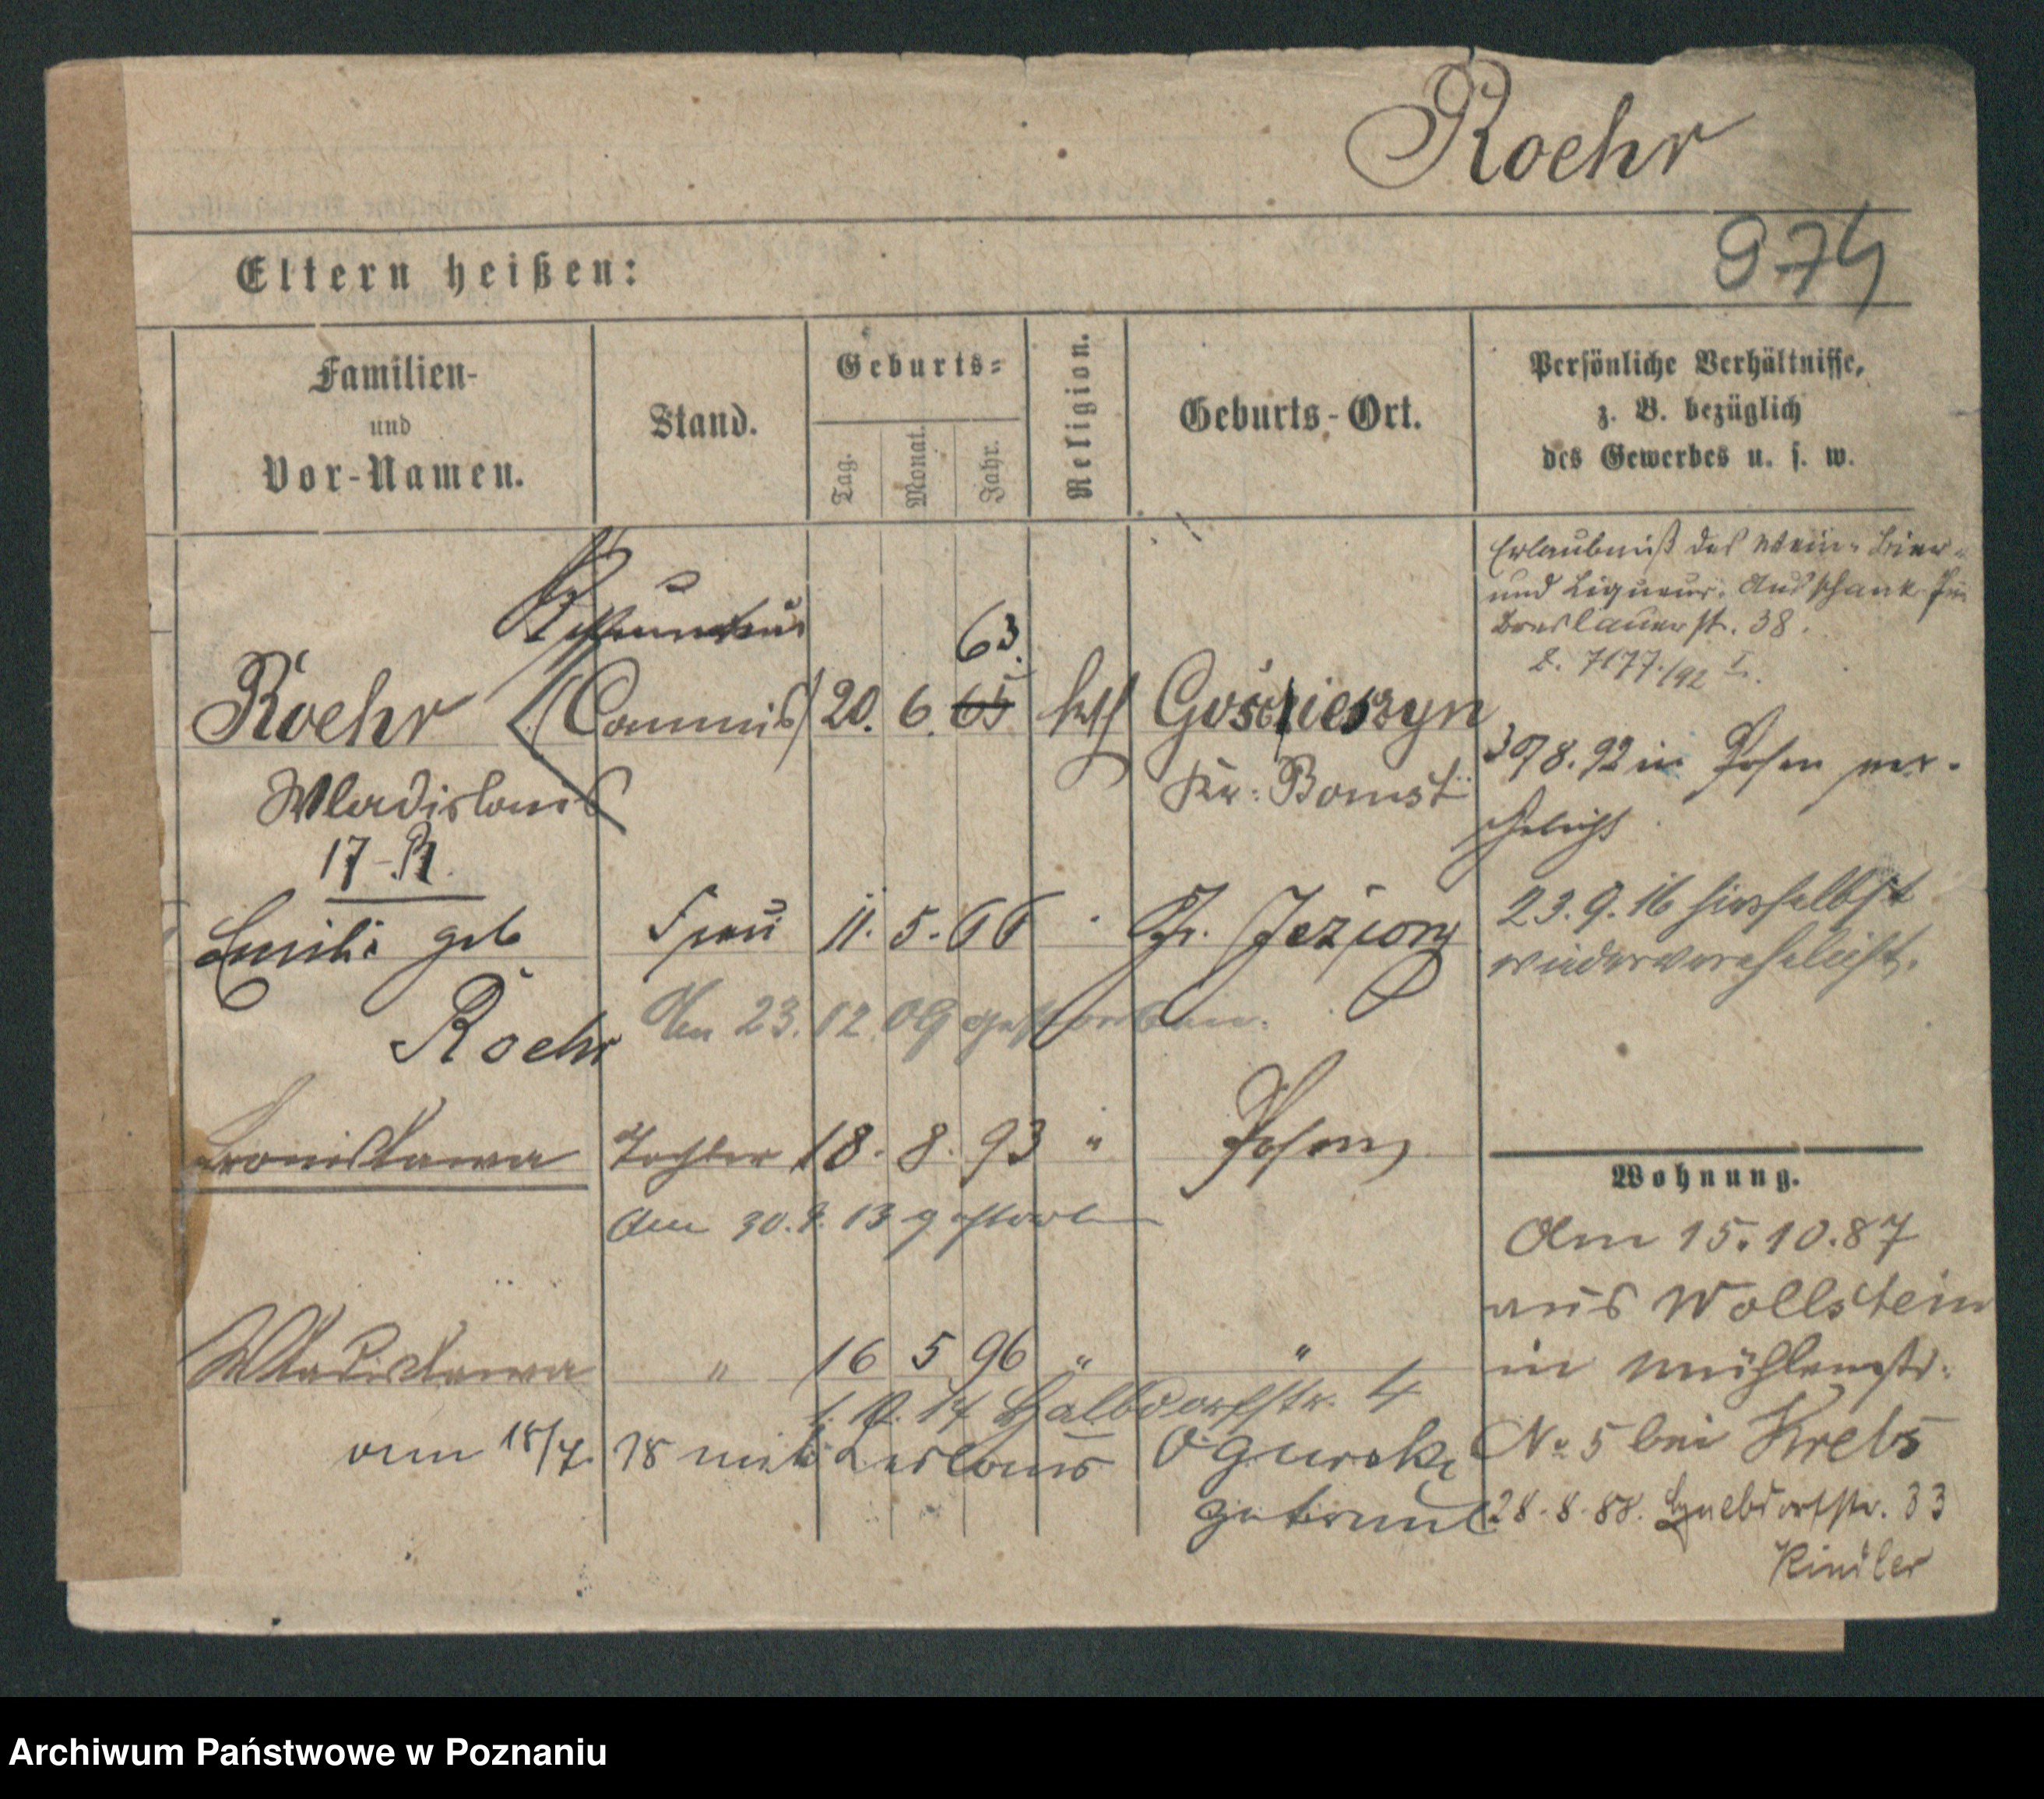 Roehr
974
Eltern heißen:
Familien-
und
Vor-Namen.
Stand.
Geburts-
Tag.
Monat.
Jahr.
Religion.
Geburts-Ort.
Persönliche Verhältnisse,
z. B. bezüglich
des Gewerbes u. s. w.
Erlaubniß des Wein- Bier-
und Liqueur-Ausschank
Breslauerst. 38.
7177./92 I.
63.
Roehr (Commis) 20. 6. 65 kath Gościeszyn
Kr. Bomst
Wladislaus
8.92 in Posen ver-
ehelicht
Emilie geb Frau 11. 5. 66 Jeżiory
Roehr
23.9.16 hierselbst
wiederverehelicht.
Am 23. 12. 09 gestorben.
Bronisława Tochter 18. 8. 93 " Posen
Am 30. 9. 13 gestorben
Wladislawa " 16 5 96 " "
14 Halbdorfstr. 4
am 18/7. 18 mit Ladislaus Ogurski
getraut
Wohnung.
Am 15.10.87
aus Wollstein
in Mühlenstr.
No 5 bei Krebs
28.8.88. Halbdorfstr. 33
Kindler
Archiwum Państwowe w Poznaniu